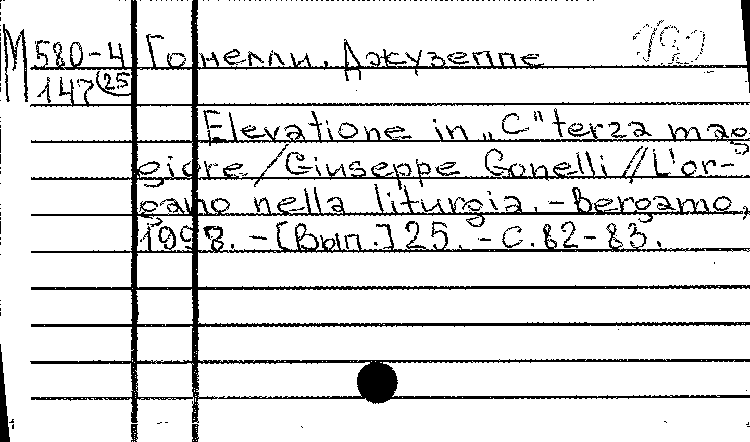 М 580-4 Гонелли, Джузеппе
147 (25)
Elevatione in „C“ terza mag
giore / Giuseppe Gonelli // L'or-
gano nella liturgia. - Bergamo,
1998. - [Вып.] 25. - С. 82-83.